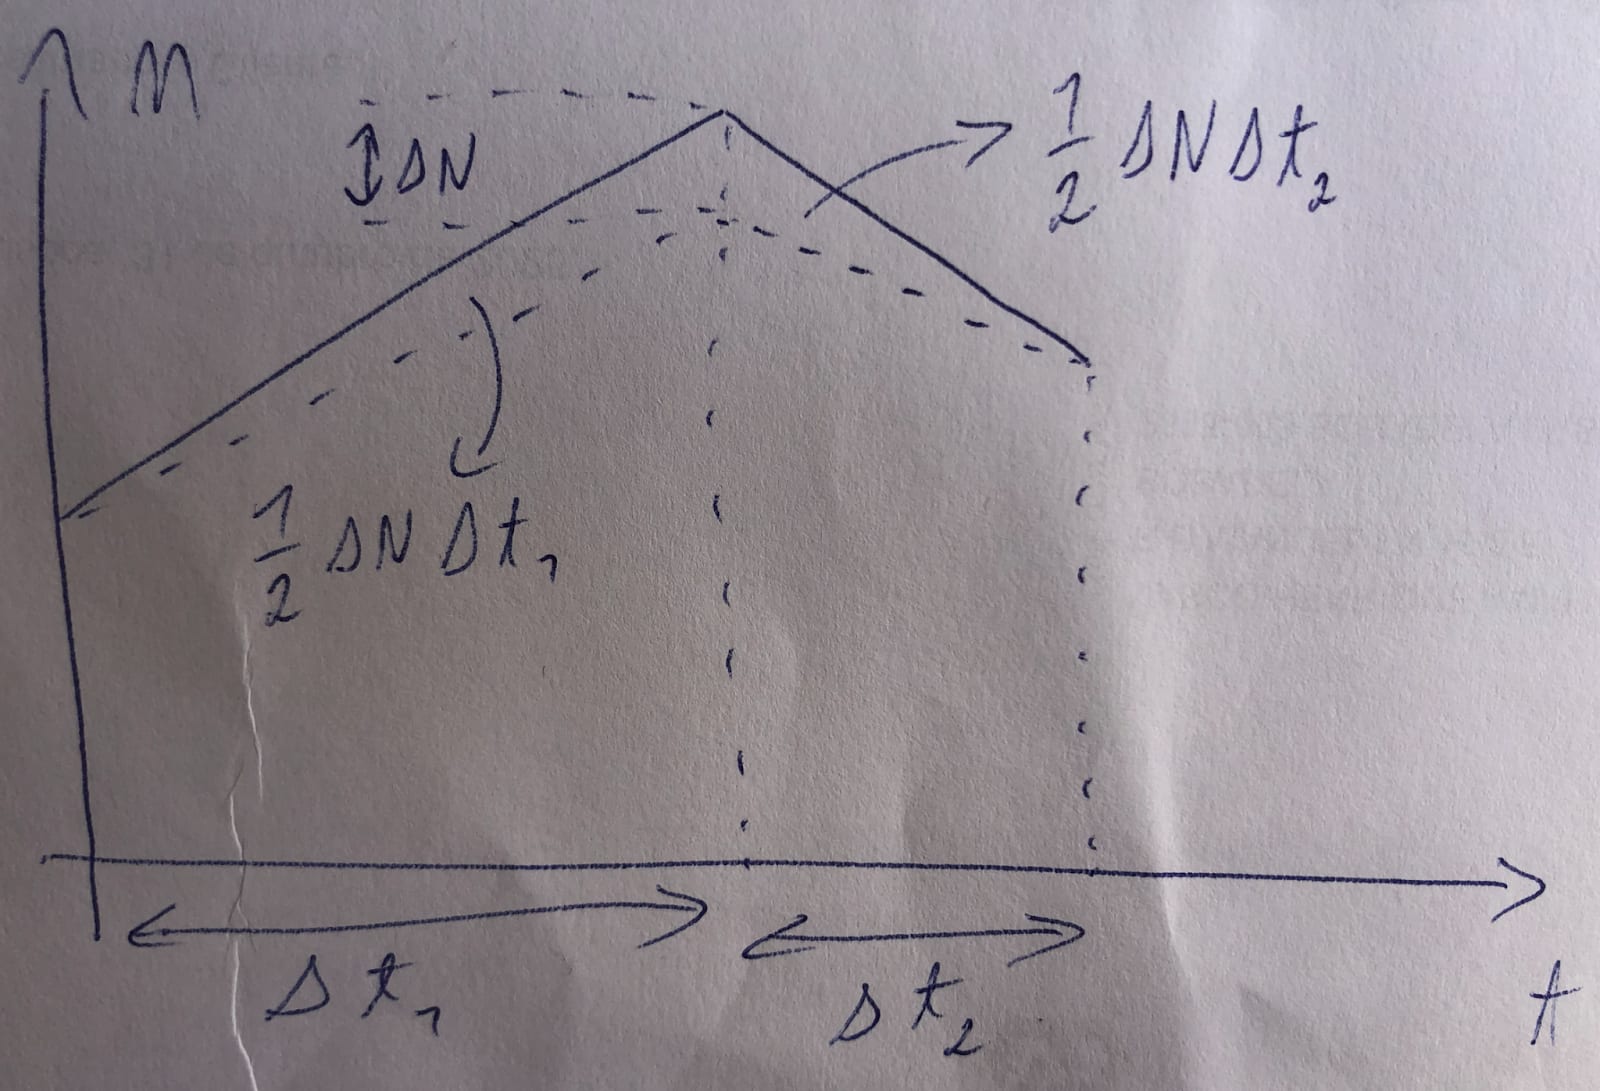 M
ΔN
1/2 ΔN Δt₂
1/2 ΔN Δt₁
Δt₁
Δt₂
t